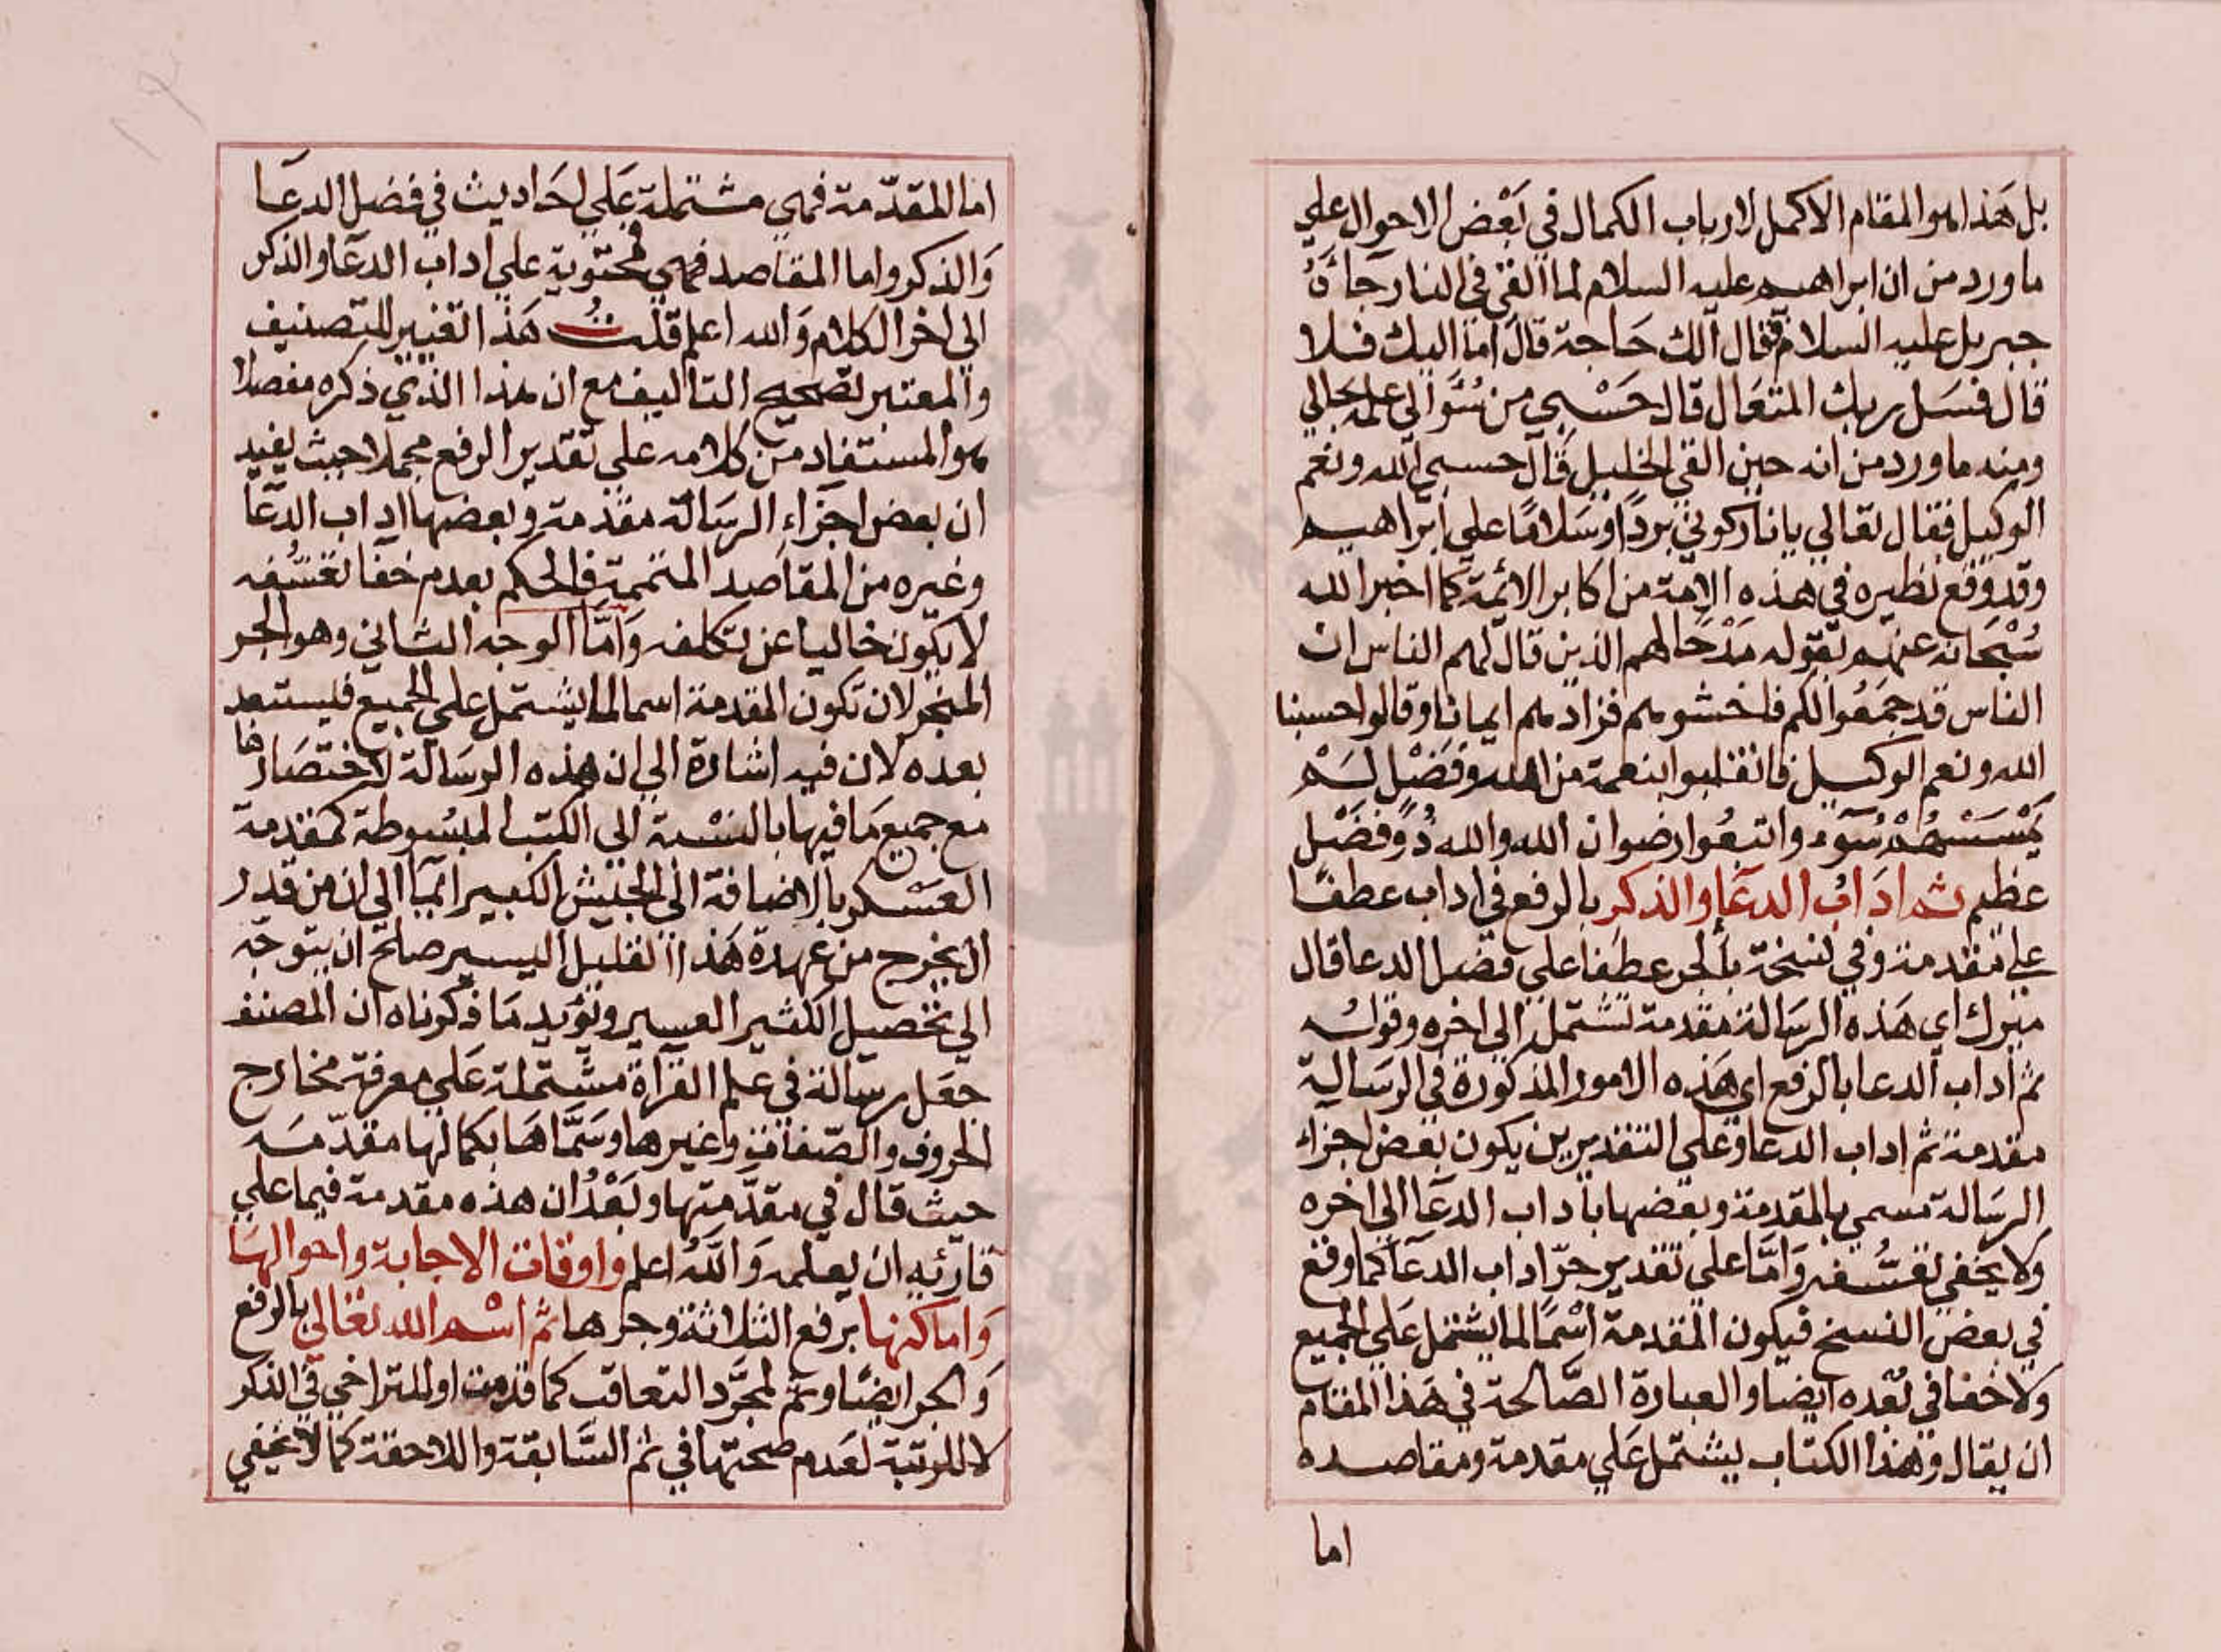 بل هذا هو المقام الاكمل لارباب الكمال في بعض الاحوال علي
ما ورد من ان ابراهيم عليه السلام لما القي في النار جاءه
جبريل عليه السلام فقال الك حاجة قال اما اليك فلا
قال فسل ربك المتعال قال حسبي من سؤالي علمه بحالي
ومنه ما ورد من انه حين القي الخليل قال حسبي الله ونعم
الوكيل فقال تعالي يا نار كوني بردا وسلاما علي ابراهيم
وقد وقع نظيره في هذه الامة من اكابر الائمة كما اخبر الله
سبحانه عنهم بقوله مدحا لهم الذين قال لهم الناس ان
الناس قد جمعوا لكم فاخشوهم فزادهم ايمانا وقالوا حسبنا
الله ونعم الوكيل فانقلبوا بنعمة من الله وفضل لم
يمسسهم سوء واتبعوا رضوان الله والله ذو فضل
عظيم ثم اداب الدعا والذكر بالرفع في اداب عطفا
علي مقدمة وفي نسخة بالجر عطفا علي فضل الدعا قال
ميرك اي هذه الرسالة مقدمة تشتمل الي اخره وقوله
ثم اداب الدعا بالرفع اي هذه الامور المذكورة في الرسالة
مقدمة ثم اداب الدعا وعلي التقديرين يكون بعض اجزاء
الرسالة مسمي بالمقدمة وبعضها باداب الدعا الي اخره
ولا يخفي تعسفه واما علي تقدير جر اداب الدعا كما وقع
في بعض النسخ فيكون المقدمة اسما لما يشتمل علي الجميع
ولا خفا في بعده ايضا والعبارة الصالحة في هذا المقام
ان يقال وهذا الكتاب يشتمل علي مقدمة ومقاصده
اما
اما المقدمة فهي مشتملة علي احاديث في فضل الدعا
والذكر واما المقاصد فهي محتوية علي اداب الدعا والذكر
الي اخر الكلام والله اعلم قلت هذا تغيير للتصنيف
والمعتبر تصحيح التاليف مع ان هذا الذي ذكره مفصلا
هو المستفاد من كلامه علي تقدير الرفع مجملا حيث يفيد
ان بعض اجزاء الرسالة مقدمة وبعضها اداب الدعا
وغيره من المقاصد المتممة فالحكم بعدم خفا تعسفه
لا يكون خاليا عن تكلفه واما الوجه الثاني وهو الجر
المنجر لان تكون المقدمة اسما لما يشتمل علي الجميع فليستبعد
بعده لان فيه اشارة الي ان هذه الرسالة لاختصارها
مع جميع ما فيها بالنسبة الي الكتب المبسوطة كمقدمة
العسكر بالاضافة الي الجيش الكبير ايما الي ان من قدر
ان يخرج من عهدة هذا القليل اليسير صلح ان يتوجه
الي تحصيل الكثير العسير ويؤيد ما ذكرناه ان المصنف
جعل رسالة في علم القراة مشتملة علي معرفة مخارج
الحروف والصفات وغيرها وسماها بكمالها مقدمه
حيث قال في مقدمتها وبعد ان هذه مقدمة فيما علي
قارئه ان يعلمه والله اعلم واوقات الاجابة واحوالها
واماكنها برفع الثلاثة وجرها ثم اسم الله تعالي بالرفع
والجر ايضا وثم لمجرد التعاقب كما قدمت او للتراخي في الذكر
لا للرتبة لعدم صحتها في ثم السابقة واللاحقة كما لا يخفي